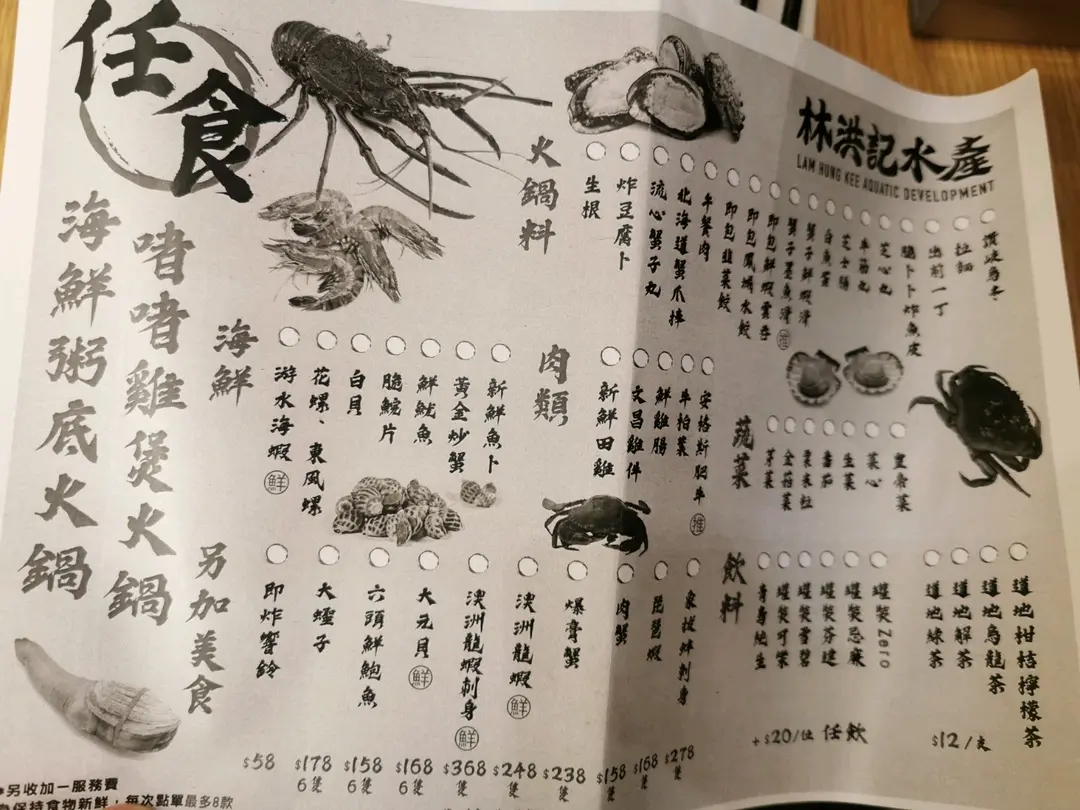 任食
林洪記水產
LAM HUNG KEE AQUATIC DEVELOPMENT
海鮮粥底火鍋
啫啫雞煲火鍋
火鍋料
生根
炸豆腐卜
流心蟹子丸
北海道蟹爪棒
午餐肉
即包韭菜餃
即包鳳城水餃
即包鮮蝦雲吞
蟹子墨魚滑 推
蟹子鮮蝦滑
白魚蛋
芝士腸
牛筋丸
芝心丸
脆卜卜炸魚皮
出前一丁
拉麵
讚岐烏冬
海鮮
游水海蝦 鮮
花螺、東風螺
白貝
脆鯇片
鮮魷魚
黃金炒蟹
新鮮魚卜
肉類
新鮮田雞
文昌雞件
鮮雞腸
牛柏葉
安格斯肥牛 推
蔬菜
芽菜
金菇菜
粟米粒
番茄
生菜
菜心
皇帝菜
另加美食
即炸響鈴 $58
大蟶子 $178 6隻
六頭鮮鮑魚 $158 6隻
大元貝 鮮 $168 6隻
澳洲龍蝦刺身 鮮 $368 隻
澳洲龍蝦 鮮 $248 隻
爆膏蟹 $238 隻
肉蟹 $158 隻
琵琶蝦 $168 隻
象拔蚌刺身 $278 隻
飲料
罐裝可樂
罐裝雪碧
罐裝芬達
罐裝忌廉
罐裝Zero
+$20/位 任飲
道地綠茶
道地解茶
道地烏龍茶
道地柑桔檸檬茶
$12/支
另收加一服務費
為保持食物新鮮，每次點單最多8款